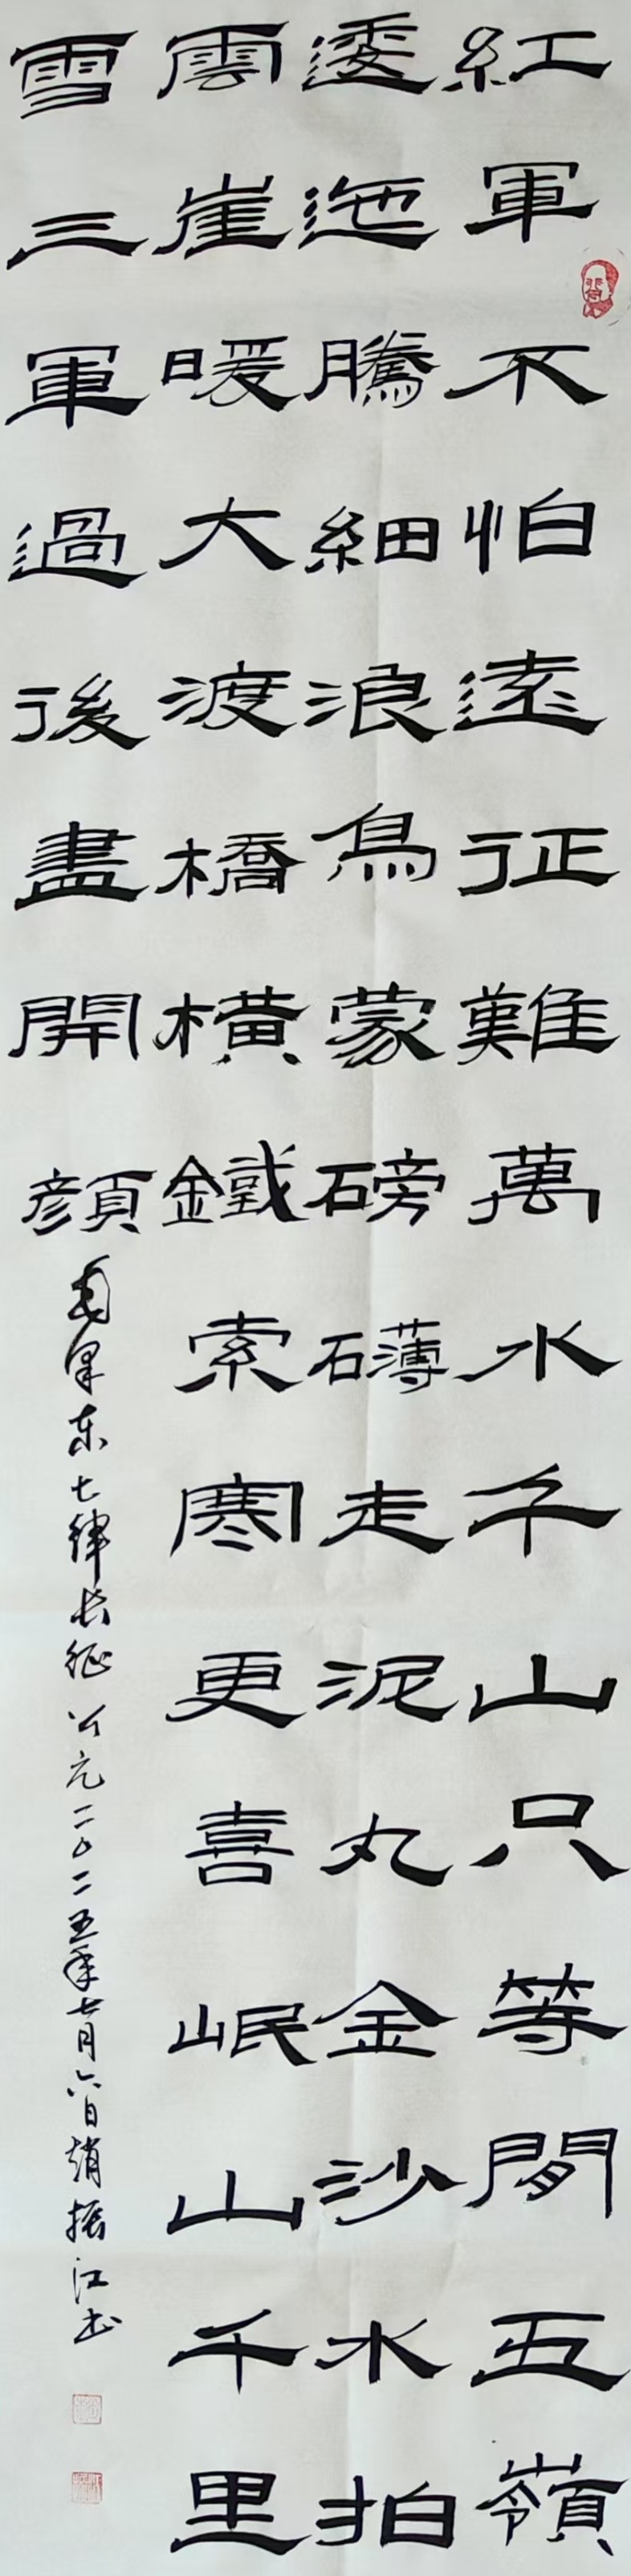 紅軍不怕遠征難萬水千山只等閒五嶺
逶迤騰細浪烏蒙磅礴走泥丸金沙水拍
雲崖暖大渡橋橫鐵索寒更喜岷山千里
雪三軍過後盡開顏
毛泽东七律长征公元二〇二五年七月六日趙振江书